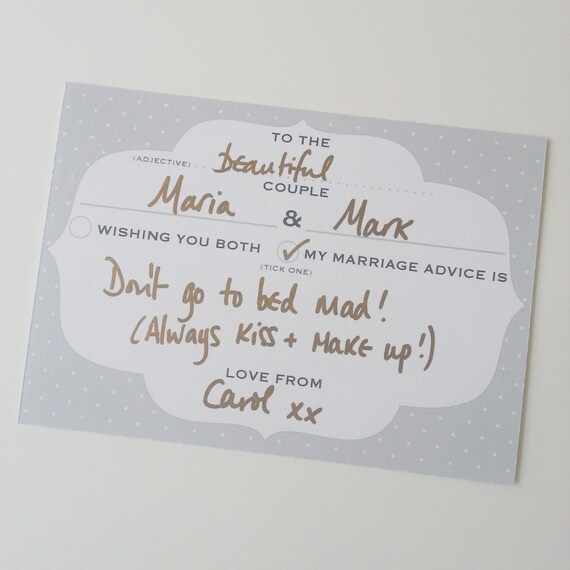 TO THE
(ADJECTIVE) beautiful
COUPLE
Maria & Mark
WISHING YOU BOTH ✓ MY MARRIAGE ADVICE IS
(TICK ONE)
Don't go to bed mad!
(Always Kiss + Make up!)
LOVE FROM
Carol xx